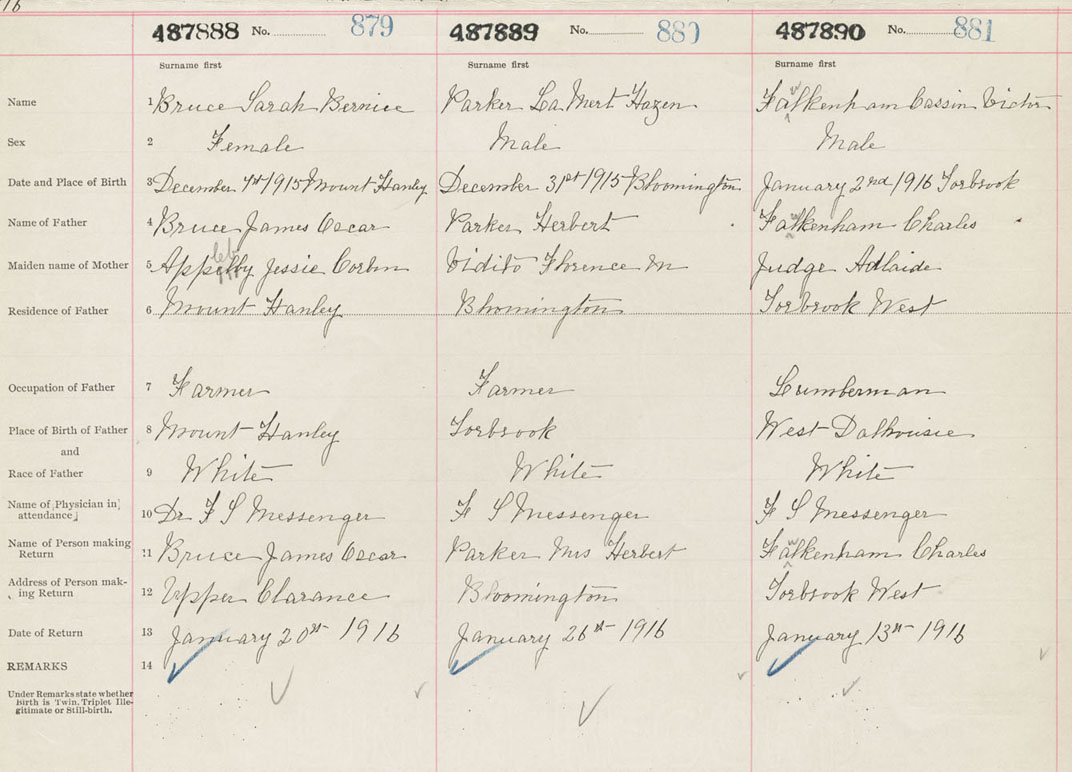 16
487888 No. 879 487889 No. 880 487890 No. 881
Surname first Surname first Surname first
Name 1 Bruce Sarah Bernice Parker La Mert Hazen Falkenham Cassin Victor
Sex 2 Female Male Male
Date and Place of Birth 3 December 4st 1915 Mount Hanley December 31st 1915 Bloomington January 2nd 1916 Torbrook
Name of Father 4 Bruce James Oscar Parker Herbert Falkenham Charles
Maiden name of Mother 5 Jessie Vidito Florence M Judge Adlaide
Residence of Father 6 Mount Hanley Bloomington Torbrook West
Occupation of Father 7 Farmer Farmer Lumberman
Place of Birth of Father 8 Mount Hanley Torbrook West Dalhousie
and
Race of Father 9 White White White
Name of Physician in
attendance 10 Dr F S Messenger F S Messenger F S Messenger
Name of Person making
Return 11 Bruce James Oscar Parker Mrs Herbert Falkenham Charles
Address of Person mak-
ing Return 12 Upper Clarance Bloomington Torbrook West
Date of Return 13 January 20st 1916 January 26st 1916 January 13st 1916
REMARKS 14
Under Remarks state whether
Birth is Twin. Triplet Ille-
gitimate or Still-birth.